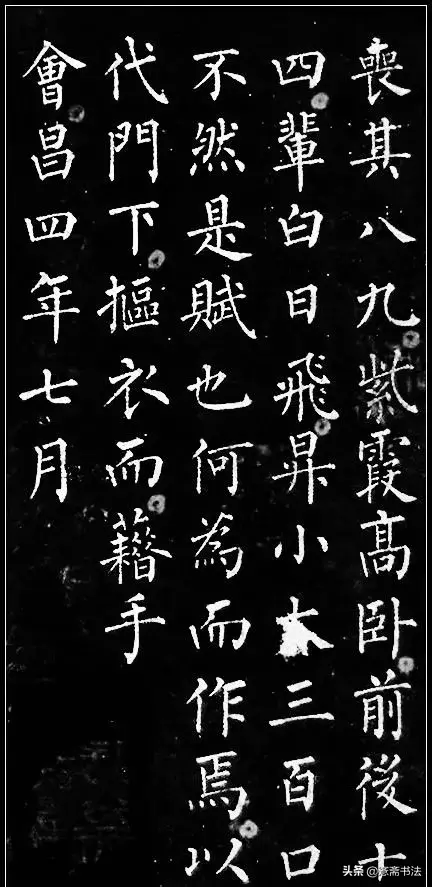 喪其八九紫霞髙卧前後十
四輩白日飛昇小大三百口
不然是賦也何為而作焉以
代門下摳衣而藉手
會昌四年七月
头条 @斋书法